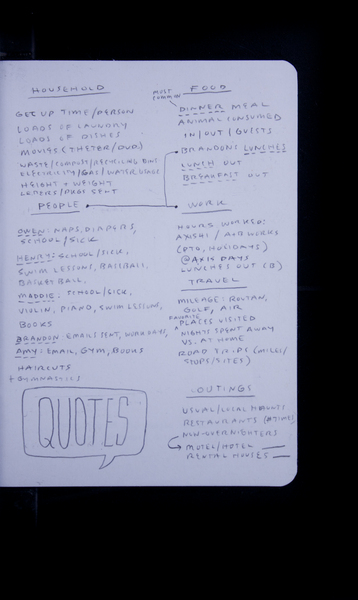 HOUSEHOLD
GET UP TIME/PERSON
LOADS OF LAUNDRY
LOADS OF DISHES
MOVIES (THETER/DVD)
WASTE/COMPOST/RECYCLING BINS
ELECTRICITY/GAS/WATER USAGE
HEIGHT + WEIGHT
LETERS/PKGS SENT
PEOPLE
OWEN: NAPS, DIAPERS,
SCHOOL/SICK
HENRY: SCHOOL/SICK,
SWIM LESSONS, BASEBALL,
BASKETBALL.
MADDIE: SCHOOL/SICK,
VIOLIN, PIANO, SWIM LESSONS,
BOOKS
BRANDON: EMAILS SENT, WORK DAYS,
AMY: EMAIL, GYM, BOOKS
HAIRCUTS
+ GYMNASTICS
QUOTES
FOOD
MOST COMMON
DINNER MEAL
ANIMAL CONSUMED
IN/OUT/GUESTS
BRANDONS LUNCHES
LUNCH OUT
BREAKFAST OUT
WORK
HOURS WORKED:
AXISHI / A+B WORKS
(PTO, HOLIDAYS)
@AXIS DAYS
LUNCHES OUT (B)
TRAVEL
MILEAGE: ROUTAN,
GOLF, AIR
FAVORITE
PLACES VISITED
NIGHTS SPENT AWAY
VS. AT HOME
ROAD TRIPS (MILES/
STOPS/SITES)
OUTINGS
USUAL/LOCAL HAUNTS
RESTAURANTS (#TIMES)
NON-OVERNIGHTERS
MOTEL/HOTEL
RENTAL HOUSES